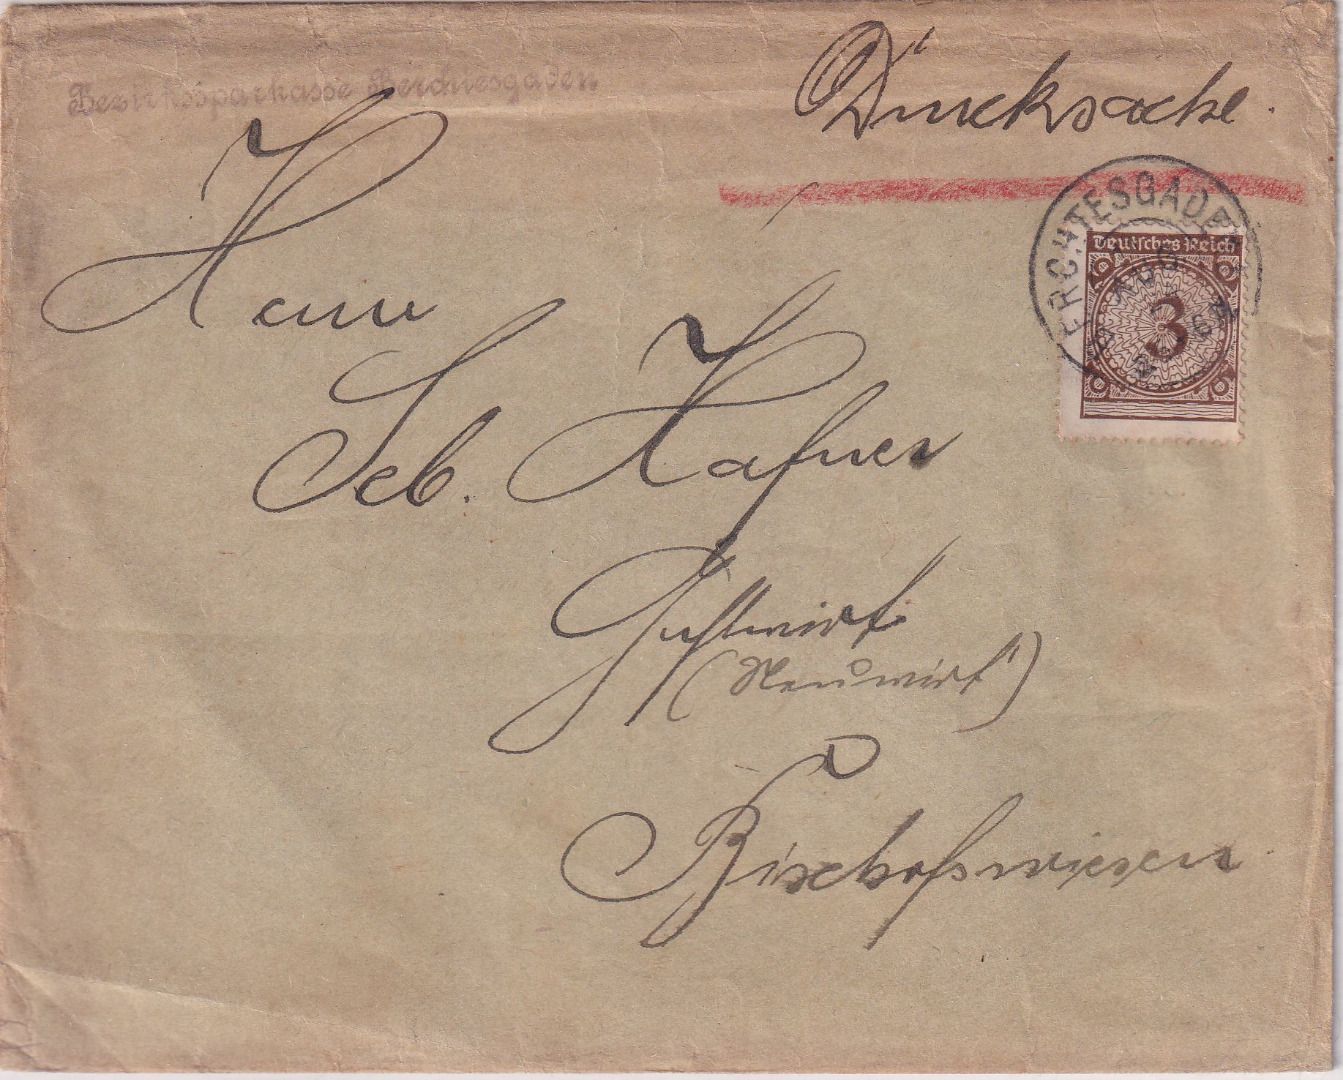 Bezirkssparkasse Berchtesgaden
Drucksache.
BERCHTESGADEN
Deutsches Reich
3
Herrn
Seb. Hafner
Gastwirt
(Neuwirt)
Bischofswiesen